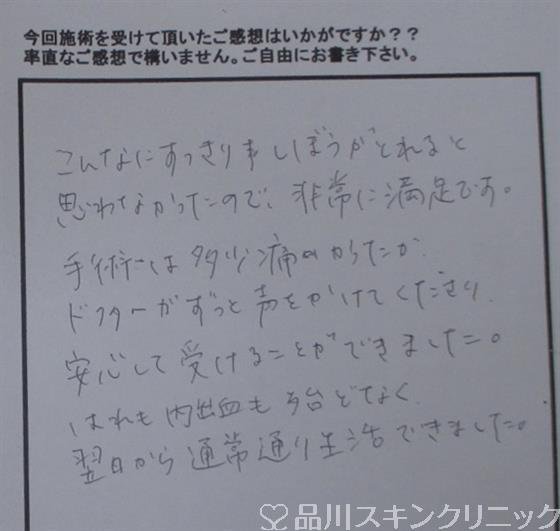 今回施術を受けて頂いたご感想はいかがですか？？
率直なご感想で構いません。ご自由にお書き下さい。
こんなにすっきり しぼうがとれると
思わなかったので、非常に満足です。
手術は多少痛かったが、
ドクターがずっと声をかけてくださり、
安心して受けることができました。
はれも内出血も殆どなく、
翌日から通常通り生活できました。
品川スキンクリニック